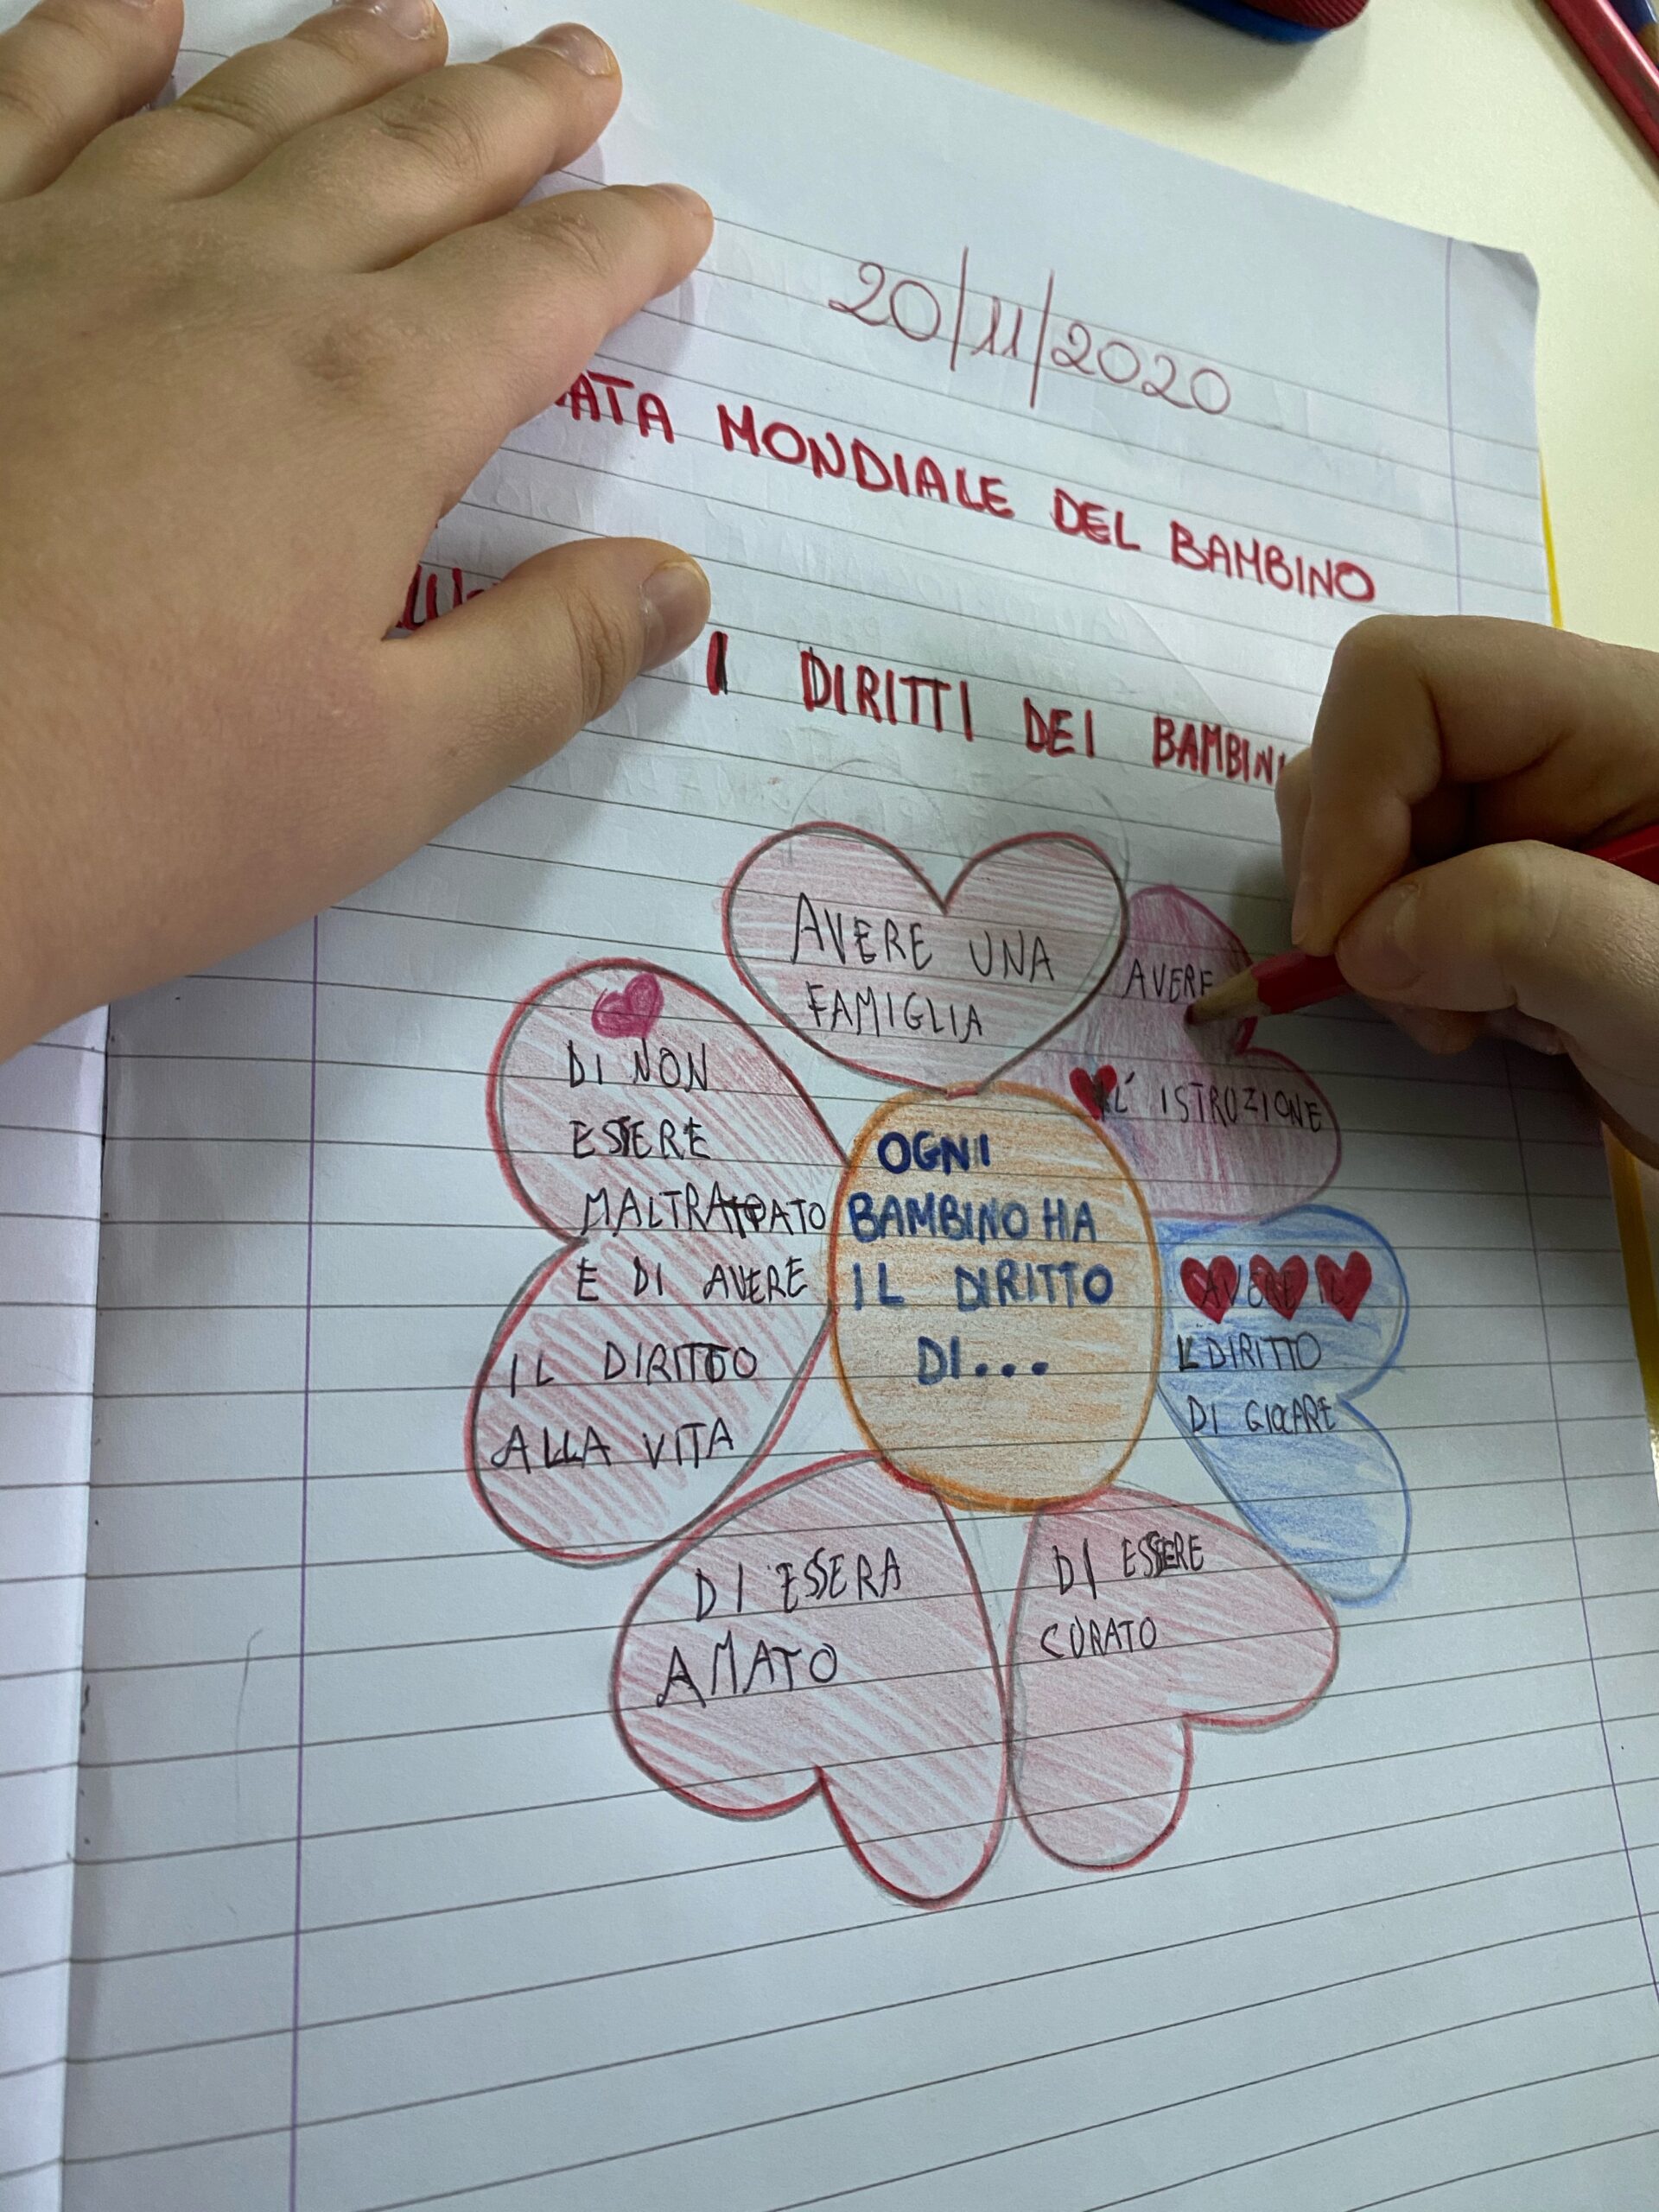 20/11/2020
MONDIALE DEL BAMBINO
I DIRITTI DEI BAMBINI
AVERE UNA
FAMIGLIA
AVERE
L' ISTROZIONE
AVERE IL
IL DIRITTO
DI GIOCARE
DI ESSERE
CURATO
DI ESSERA
AMATO
DI NON
ESSERE
MALTRATTATO
E DI AVERE
IL DIRITTO
ALLA VITA
OGNI
BAMBINO HA
IL DIRITTO
DI...